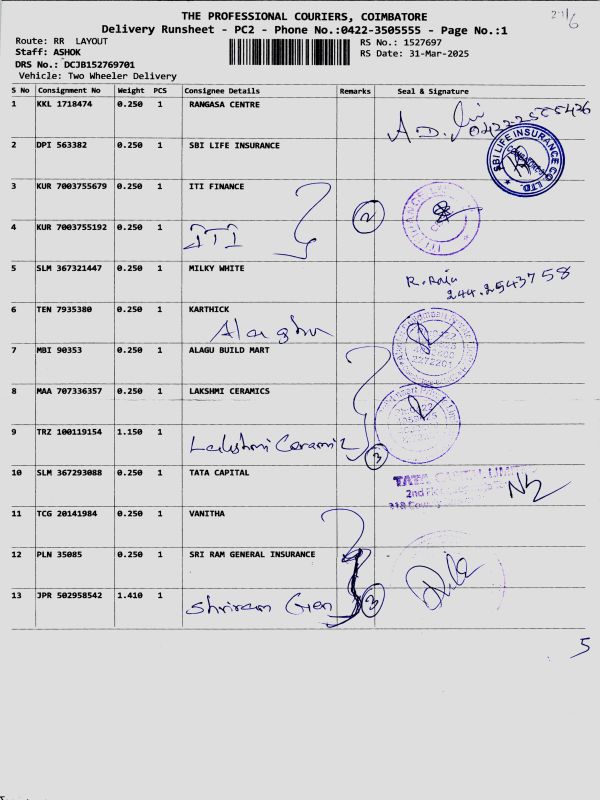 THE PROFESSIONAL COURIERS, COIMBATORE
Delivery Runsheet - PC2 - Phone No.:0422-3505555 - Page No.:1
Route: RR LAYOUT
Staff: ASHOK
DRS No.: DCJB152769701
Vehicle: Two Wheeler Delivery
RS No.: 1527697
RS Date: 31-Mar-2025
S No Consignment No Weight PCS Consignee Details Remarks Seal & Signature
1 KKL 1718474 0.250 1 RANGASA CENTRE
2 DPI 563382 0.250 1 SBI LIFE INSURANCE
SBI LIFE INSURANCE CO. LTD.
3 KUR 7003755679 0.250 1 ITI FINANCE
2
4 KUR 7003755192 0.250 1 ITI
5 SLM 367321447 0.250 1 MILKY WHITE
R. Raja
244.2543758
6 TEN 7935380 0.250 1 KARTHICK
Alaghu
7 MBI 90353 0.250 1 ALAGU BUILD MART
8 MAA 707336357 0.250 1 LAKSHMI CERAMICS
9 TRZ 100119154 1.150 1 Lakshmi Ceramic
3
10 SLM 367293088 0.250 1 TATA CAPITAL
TATA CAPITAL LIMITED
2nd
11 TCG 20141984 0.250 1 VANITHA
12 PLN 35085 0.250 1 SRI RAM GENERAL INSURANCE
13 JPR 502958542 1.410 1 Shriram Gen
3
5